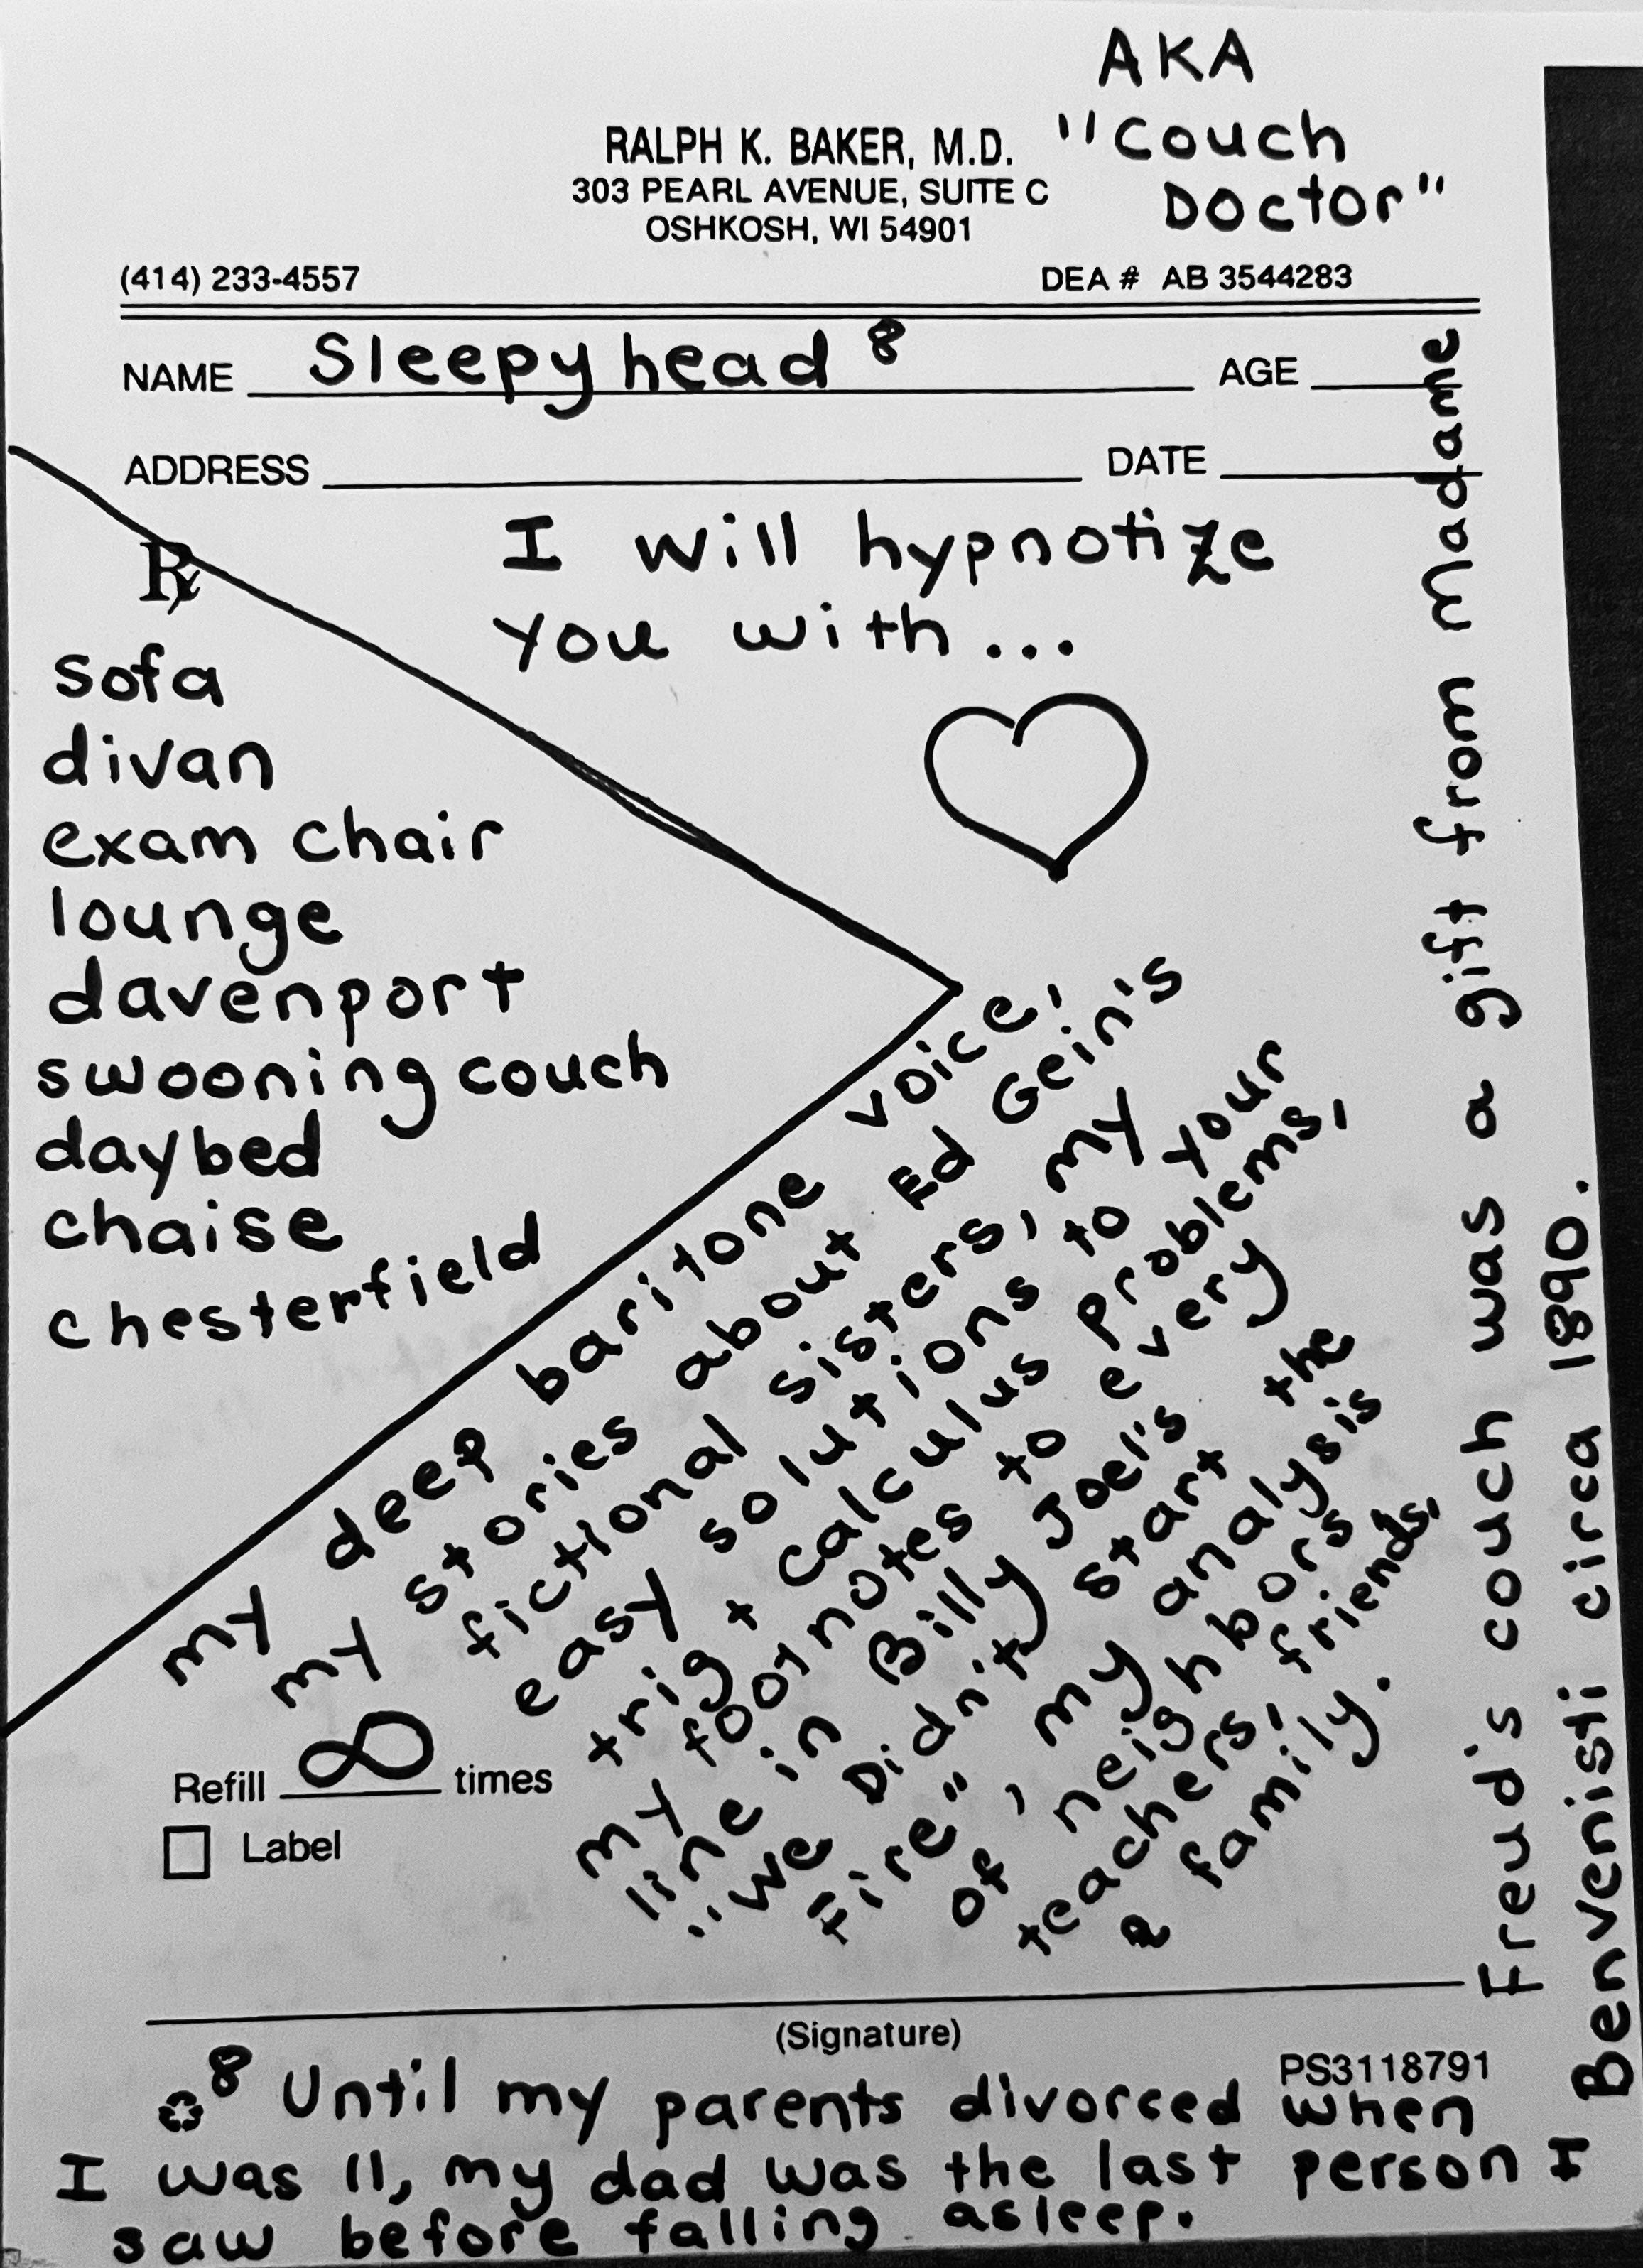 AKA
"Couch
Doctor"
RALPH K. BAKER, M.D.
303 PEARL AVENUE, SUITE C
OSHKOSH, WI 54901
(414) 233-4557
DEA # AB 3544283
NAME Sleepyhead 8
AGE
ADDRESS
DATE
Rx
I will hypnotize
you with...
sofa
divan
exam chair
lounge
davenport
swooning couch
daybed
chaise
chesterfield
my deep baritone voice,
my stories about Ed Gein's
fictional sisters, my
easy solutions to your
trig + calculus problems,
my footnotes to every
line in Billy Joel's
"We Didn't Start the
Fire", my analysis
of neighbors,
teachers, friends,
& family.
Refill ∞ times
Label
(Signature)
PS3118791
8 Until my parents divorced when
I was 11, my dad was the last person I
saw before falling asleep.
Freud's couch was a gift from Madame
Benvenisti circa 1890.